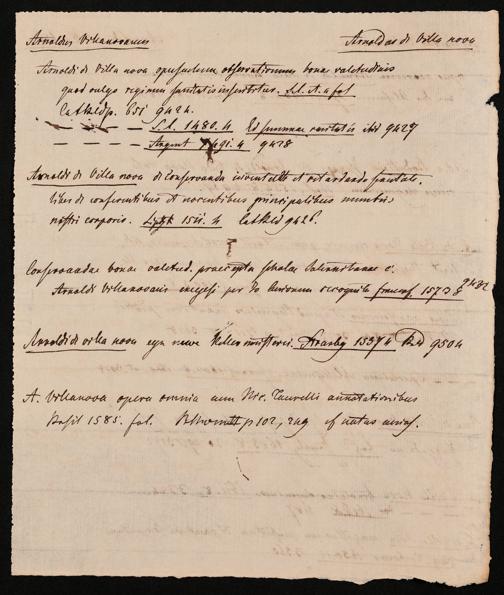 Arnoldus Villanovanus
Arnoldus di Villa nova
Arnoldi di Villa nova opusculum observationum bonae valetudinis
quod vulgo regimen sanitatis inscribitur. S. l. et. a fol
9424.
— — — — S. l. 1480. 4. Ed ibid 9427
— — — — August 1491. 4 9428
Arnoldi di Villa nova di conservanda iuventute et retardanda senectute.
liber di conferentibus et nocentibus principalibus membris
nostri corporis. Lypsk 1511. 4 942
Conservandae bonae valetud. praecepta scholae Salernitanae c.
Arnoldi Villanovani per Jo Curionem francof. 1573 8 9432
Arnoldi di villa nova eyn newe Strasbg 1537 4 Ibid 9504
A. Villanova opera omnia cum Nic. Taurelli annotationibus
Basil 1585. fol. p 102, 249 cf notas